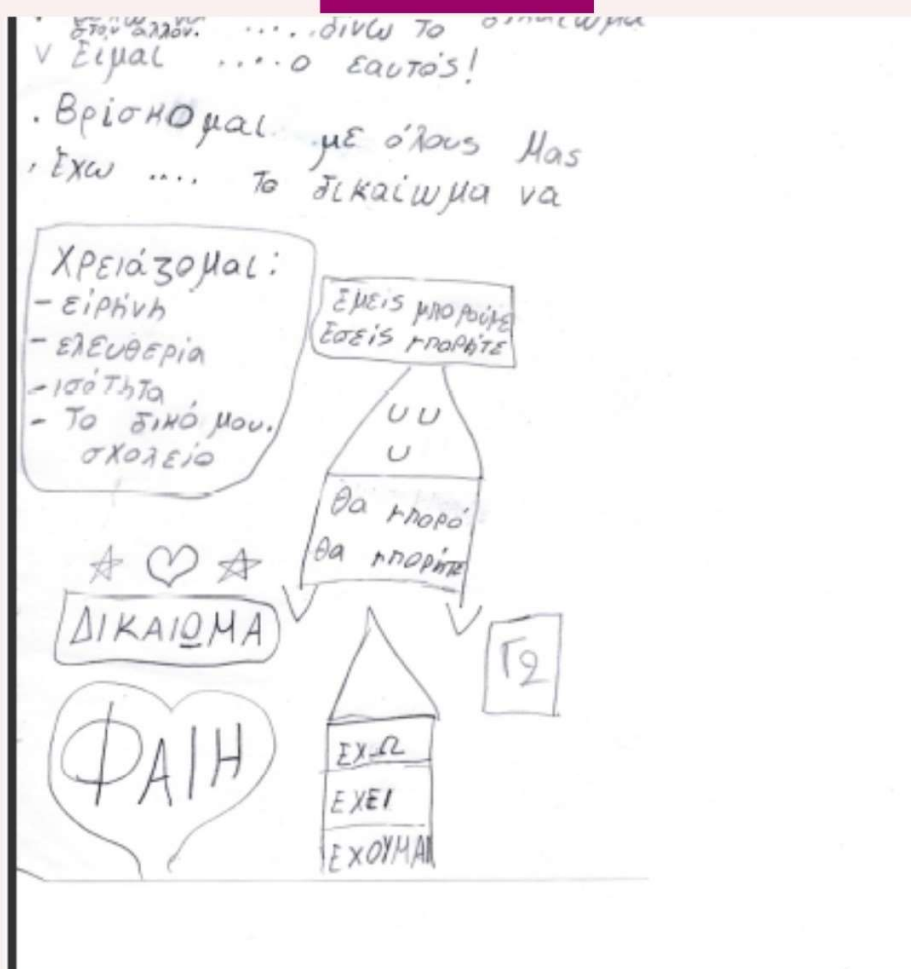 στον άλλον. .....δίνω το δικαίωμα
Είμαι ....ο εαυτός!
. Βρίσκομαι με όλους μας
. Έχω .... το δικαίωμα να
Χρειάζομαι:
- ειρήνη
- ελευθερία
- ισότητα
- Το δικό μου.
σχολείο
Εμείς μπορούμε
Εσείς μπορήτε
Θα μπορό
Θα μπορήτε
ΔΙΚΑΙΩΜΑ
Γ2
ΦΑΙΗ
ΕΧΩ
ΕΧΕΙ
ΕΧΟΥΜΑΙ